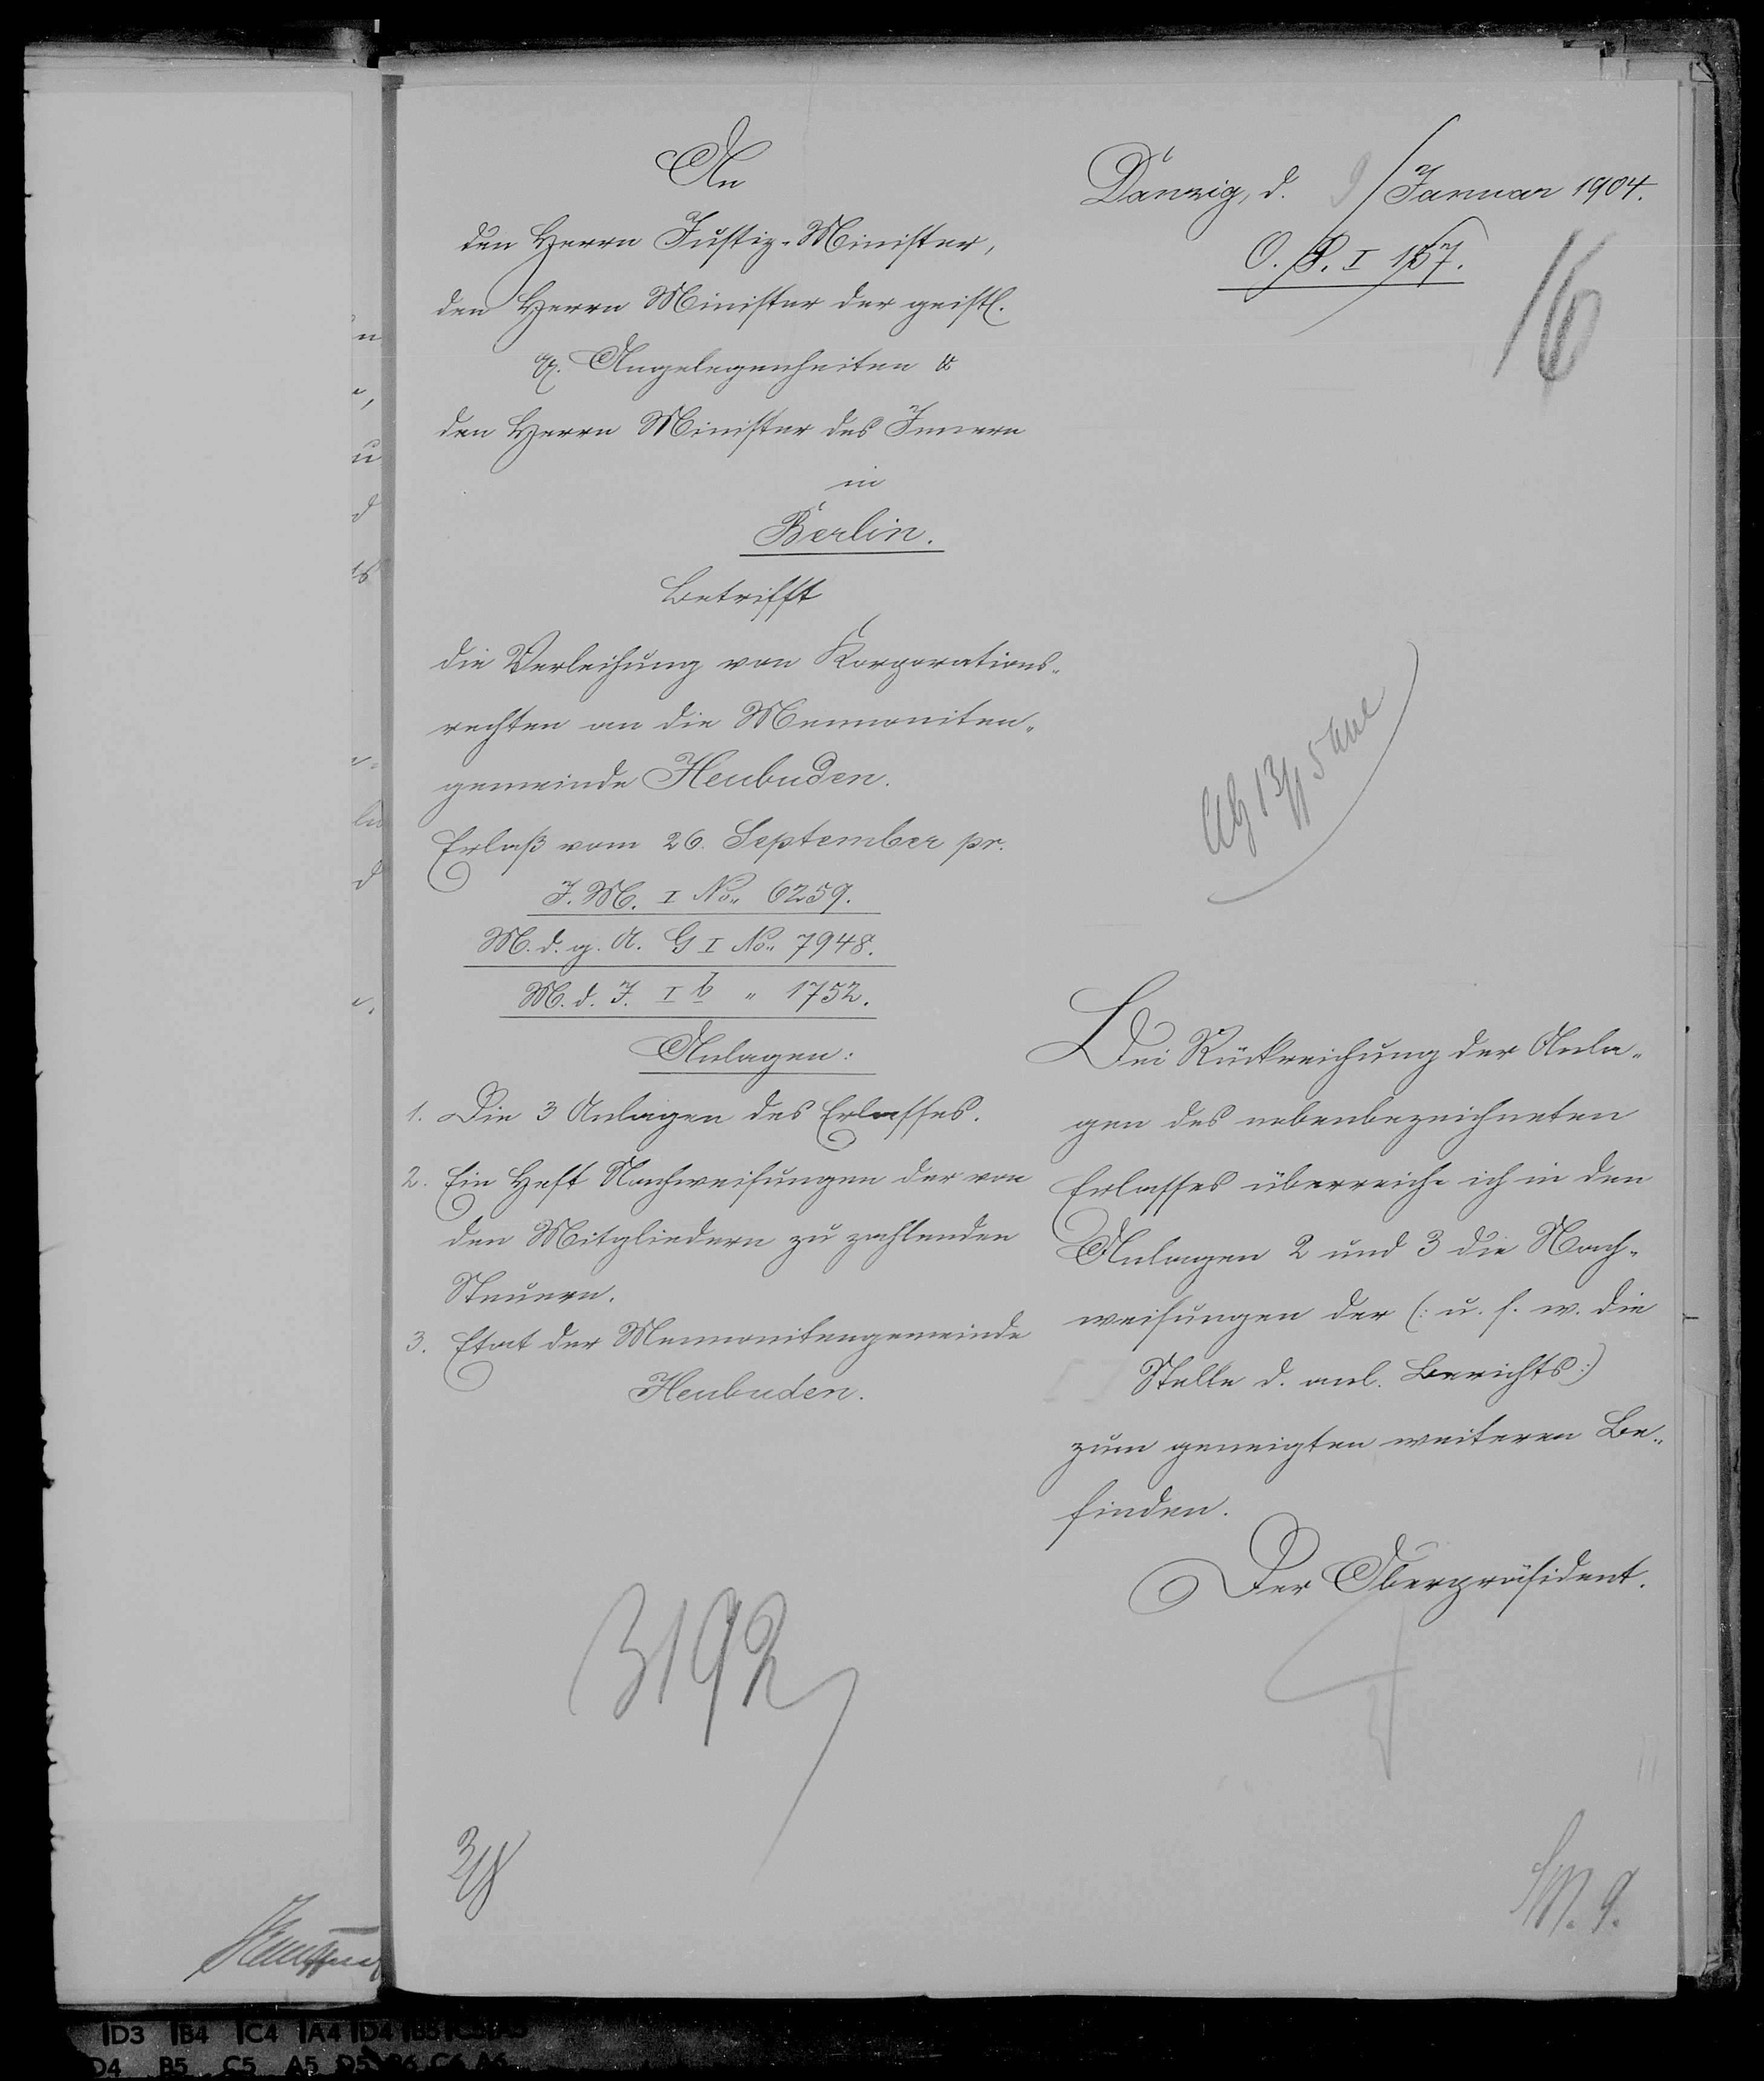 An
den Herrn Justiz-Minister,
den Herrn Minister der geistl.
pp. Angelegenheiten &
den Herrn Minister des Innern
in
Berlin.
Betrifft
die Verleihung von Korporations-
rechten an die Mennoniten-
gemeinde Heubuden.
Erlaß vom 26. September pr.
J. M. I No. 6259.
M. d. g. A. G I No. 7948.
M. d. J. I b " 1752.
Anlagen:
1. Die 3 Anlagen des Erlasses.
2. Ein Heft Nachweisungen der von
den Mitgliedern zu zahlenden
Steuern.
3. Etat der Mennonitengemeinde
Heubuden.
3192
Danzig, d. 9/Januar 1904.
O. P. I 157.
16
Bei Rückreichung der Anla-
gen des nebenbezeichneten
Erlasses überreiche ich in den
Anlagen 2 und 3 die Nach-
weisungen der (: u. s. w. die
Stelle d. anl. Berichts :)
zum geneigten weiteren Be-
finden.
Der Oberpräsident.
D3 B4 C4 A4 D4 B5
D4 B5 C5 A5 D5 B6 C6 A6